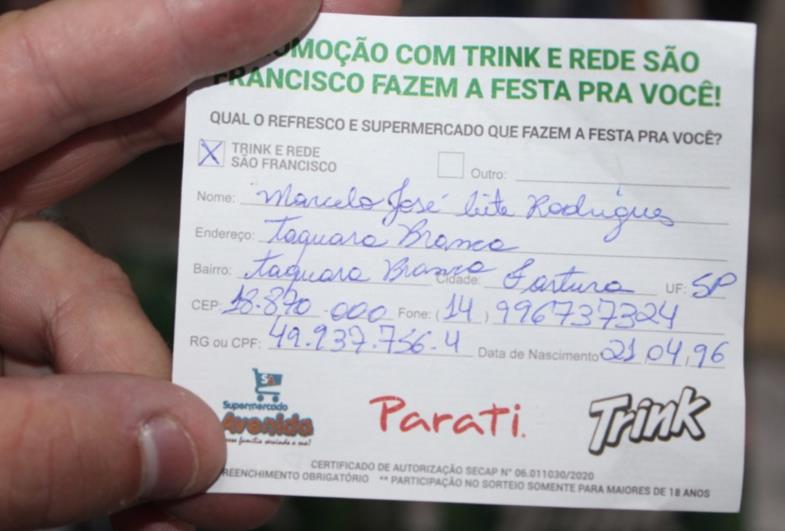 OMOÇÃO COM TRINK E REDE SÃO
FRANCISCO FAZEM A FESTA PRA VOCÊ!
QUAL O REFRESCO E SUPERMERCADO QUE FAZEM A FESTA PRA VOCÊ?
X TRINK E REDE SÃO FRANCISCO Outro:
Nome: Marcelo José Leite Rodrigues
Endereço: Taquara Branca
Bairro: Taquara Branca Cidade: Fartura UF: SP
CEP: 18.870.000 Fone: (14) 996737324
RG ou CPF: 49.937.756-4 Data de Nascimento 21,04,96
Supermercado
Avenida
Parati.
Trink
CERTIFICADO DE AUTORIZAÇÃO SECAP N° 06.011030/2020
REENCHIMENTO OBRIGATÓRIO ** PARTICIPAÇÃO NO SORTEIO SOMENTE PARA MAIORES DE 18 ANOS